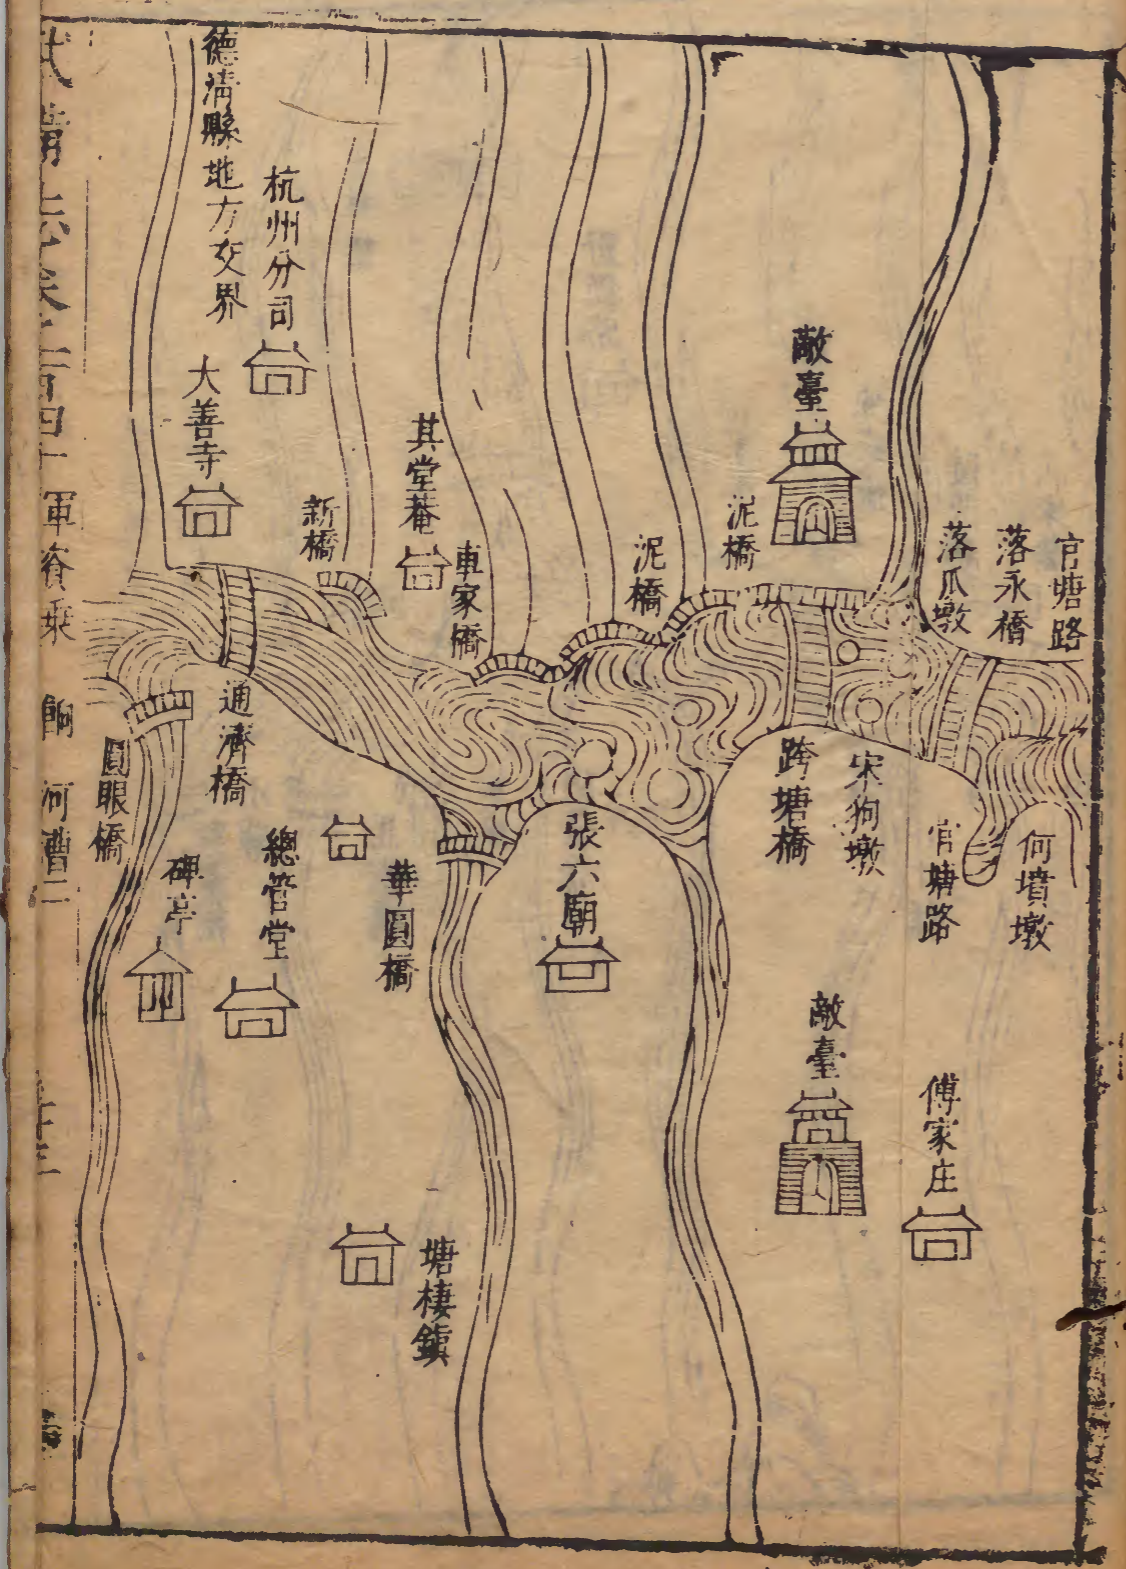 官塘路
落永橋
落瓜墩
敵臺
泥橋
泥橋
車家橋
其堂菴
新橋
杭州分司
德清縣地方交界
大善寺
何墳墩
官塘路
宋狗墩
跨塘橋
張六廟
華圓橋
總管堂
通濟橋
碑亭
圓眼橋
傅家庄
敵臺
塘棲鎮
武備志卷一百四十 軍資乘 餉 河漕二